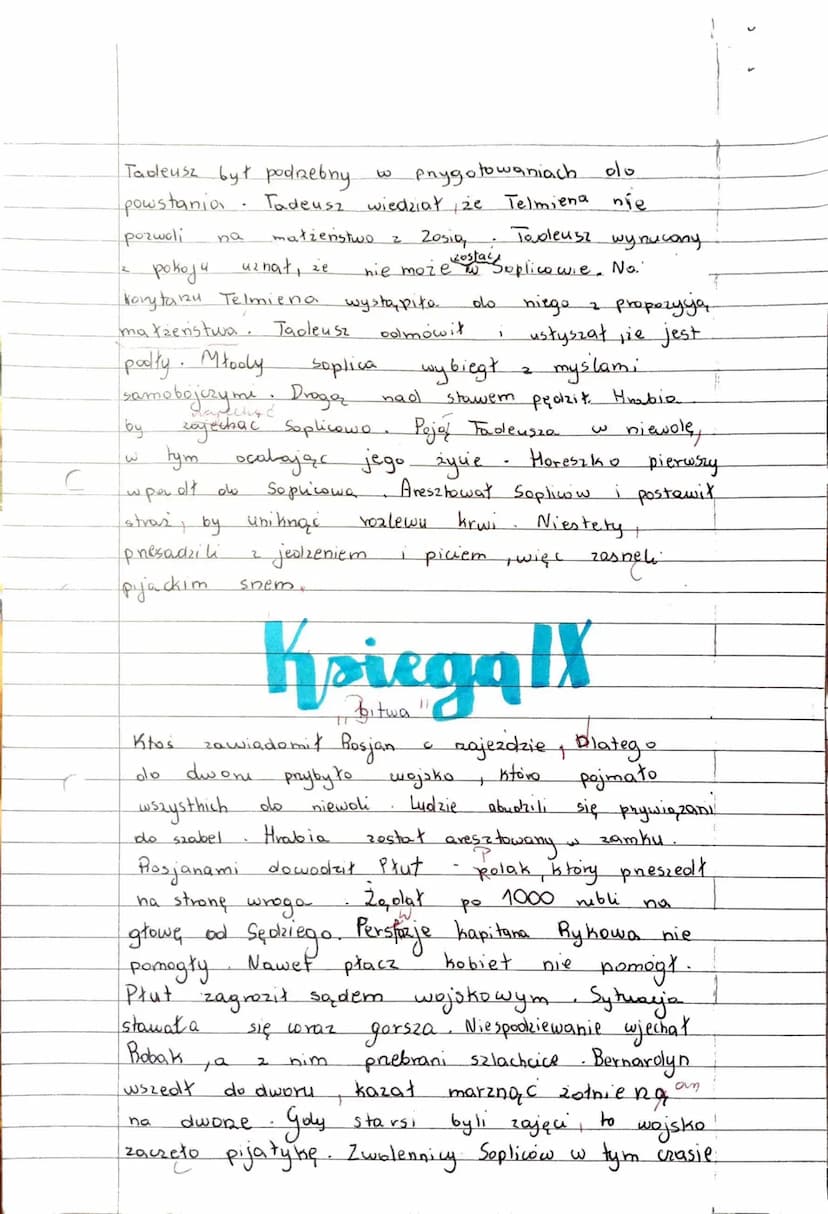 Tadeusz był podrzebny w pnygotowaniach do
powstania. Tadeusz wiedział, że Telmiena nie
pozwoli na małżeństwo z Zosią. Tadeusz wynucony
z pokoju uznał, że nie może zostać w Soplicowie. Na
korytarzu Telmiena wystąpiła do niego z propozycją
małżeństwa. Tadeusz odmówił i usłyszał, że jest
podły. Młody soplica wybiegł z myślami
samobójczymi. Drogą nad stawem pędził Hrabia
by zajechać Soplicowo. Pojął Tadeusza w niewolę,
w tym ocalając jego życie. Horeszko pierwszy
wpadł do Soplicowa. Aresztował Sopliców i postawił
straż, by uniknąć rozlewu krwi. Niestety,
pnesadzili z jedzeniem i piciem, więc zasneli
pijackim snem.
Księga IX
"Bitwa"
Ktoś zawiadomił Rosjan o zajeździe, Dlatego
do dworu pnybyło wojsko, które pojmało
wszystkich do niewoli. Ludzie obudzili się prywiązani
do szabel. Hrabia został aresztowany w zamku.
Rosjanami dowodził Płut - Polak, który pneszedł
na stronę wroga. Żądał po 1000 rubli na
głowę od Sędziego. Perswazje kapitana Rykowa nie
pomogły. Nawet płacz kobiet nie pomógł.
Płut zagroził sądem wojskowym. Sytuacja
stawała się coraz gorsza. Niespodziewanie wjechał
Robak, a z nim pnebrani szlachcice. Bernardyn
wszedł do dworu, kazał marznąć żołnieną
na dwone. Gdy starsi byli zajęci, to wojsko
zaczęło pijatykę. Zwolennicy Sopliców w tym czasie